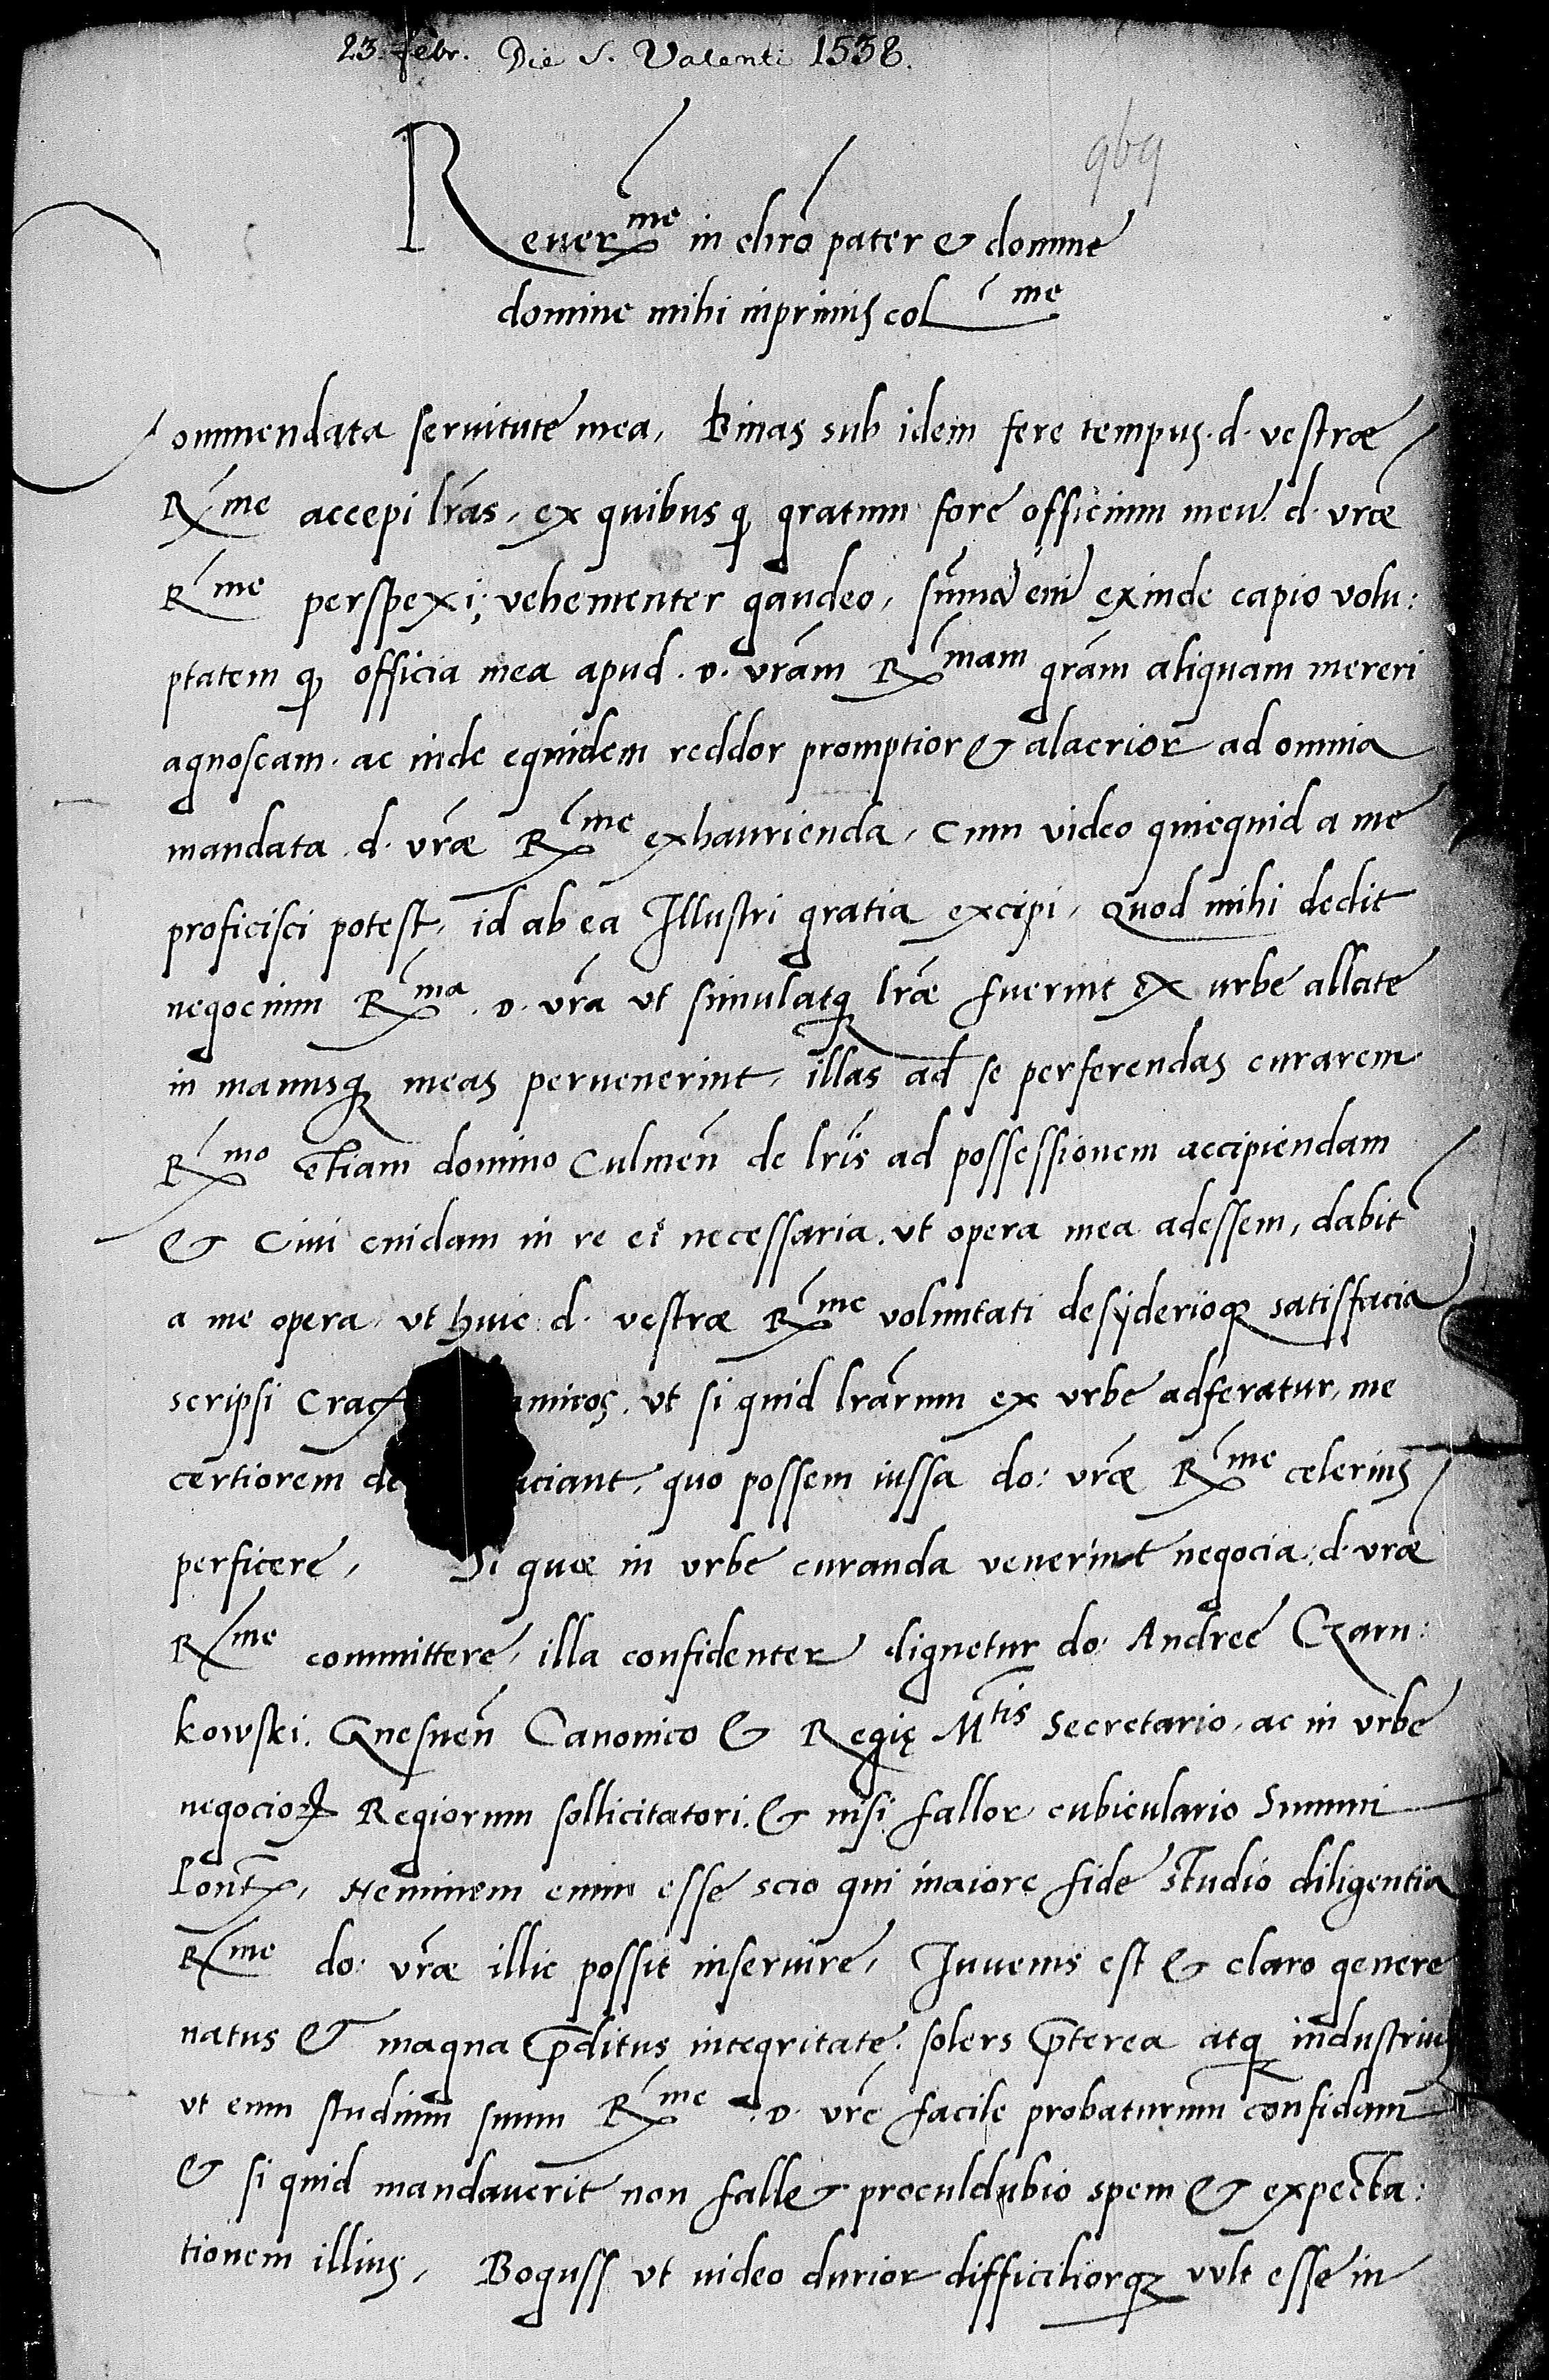 23. febr. Die S. Valenti 1538.
969
Reuerme in chro pater & domine
domine mihi inprimis colme
Commendata seruitute mea, Binas sub idem fere tempus. d. vestræ
Rme accepi lras, ex quibus q gratum fore officium meu d. vræ
Rme perspexi, vehementer gaudeo, suma eni exinde capio volu:
ptatem q officia mea apud. D. vram Rmam gram aliquam mereri
agnoscam. ac inde equidem reddor promptior & alacrior ad omnia
mandata d. vræ Rme exhaurienda, Cum video quicquid a me
proficisci potest, id ab ea Illustri gratia excipi, Quod mihi dedit
negocium Rma. D. vra vt simulatq lræ fuerint ex urbe allate
in manusq meas peruenerint, illas ad se perferendas curarem
Rmo etiam domino Culmen de lris ad possessionem accipiendam
& Ciui cuidam in re ei necessaria. vt opera mea adessem, dabit
a me opera vt huic d. vestræ Rme voluntati desyderioq satisfacia
scripsi Crac amicos, vt si quid lrarum ex vrbe adferatur, me
certiorem de faciant, quo possem iussa do: vræ Rme celerius
perficere, Si quæ in vrbe curanda venerint negocia d. vræ
Rme committere, illa confidenter dignetur do: Andree Czarn:
kowski. Gnesnen Canonico & Regię Mtis Secretario, ac in vrbe
negocior Regiorum sollicitatori. & nisi fallor cubiculario Summi
Pont, Neminem enim esse scio qui maiore fide studio diligentia
Rme do: vræ illic possit inseruire, Juuenis est & claro genere
natus & magna pditus integritate. solers pterea atq industrius
vt eum studium suum Rme. D. vre facile probaturum confidam
& si quid mandauerit non fallet proculdubio spem & expecta:
tionem illius, Boguss vt uideo durior difficiliorq vult esse in